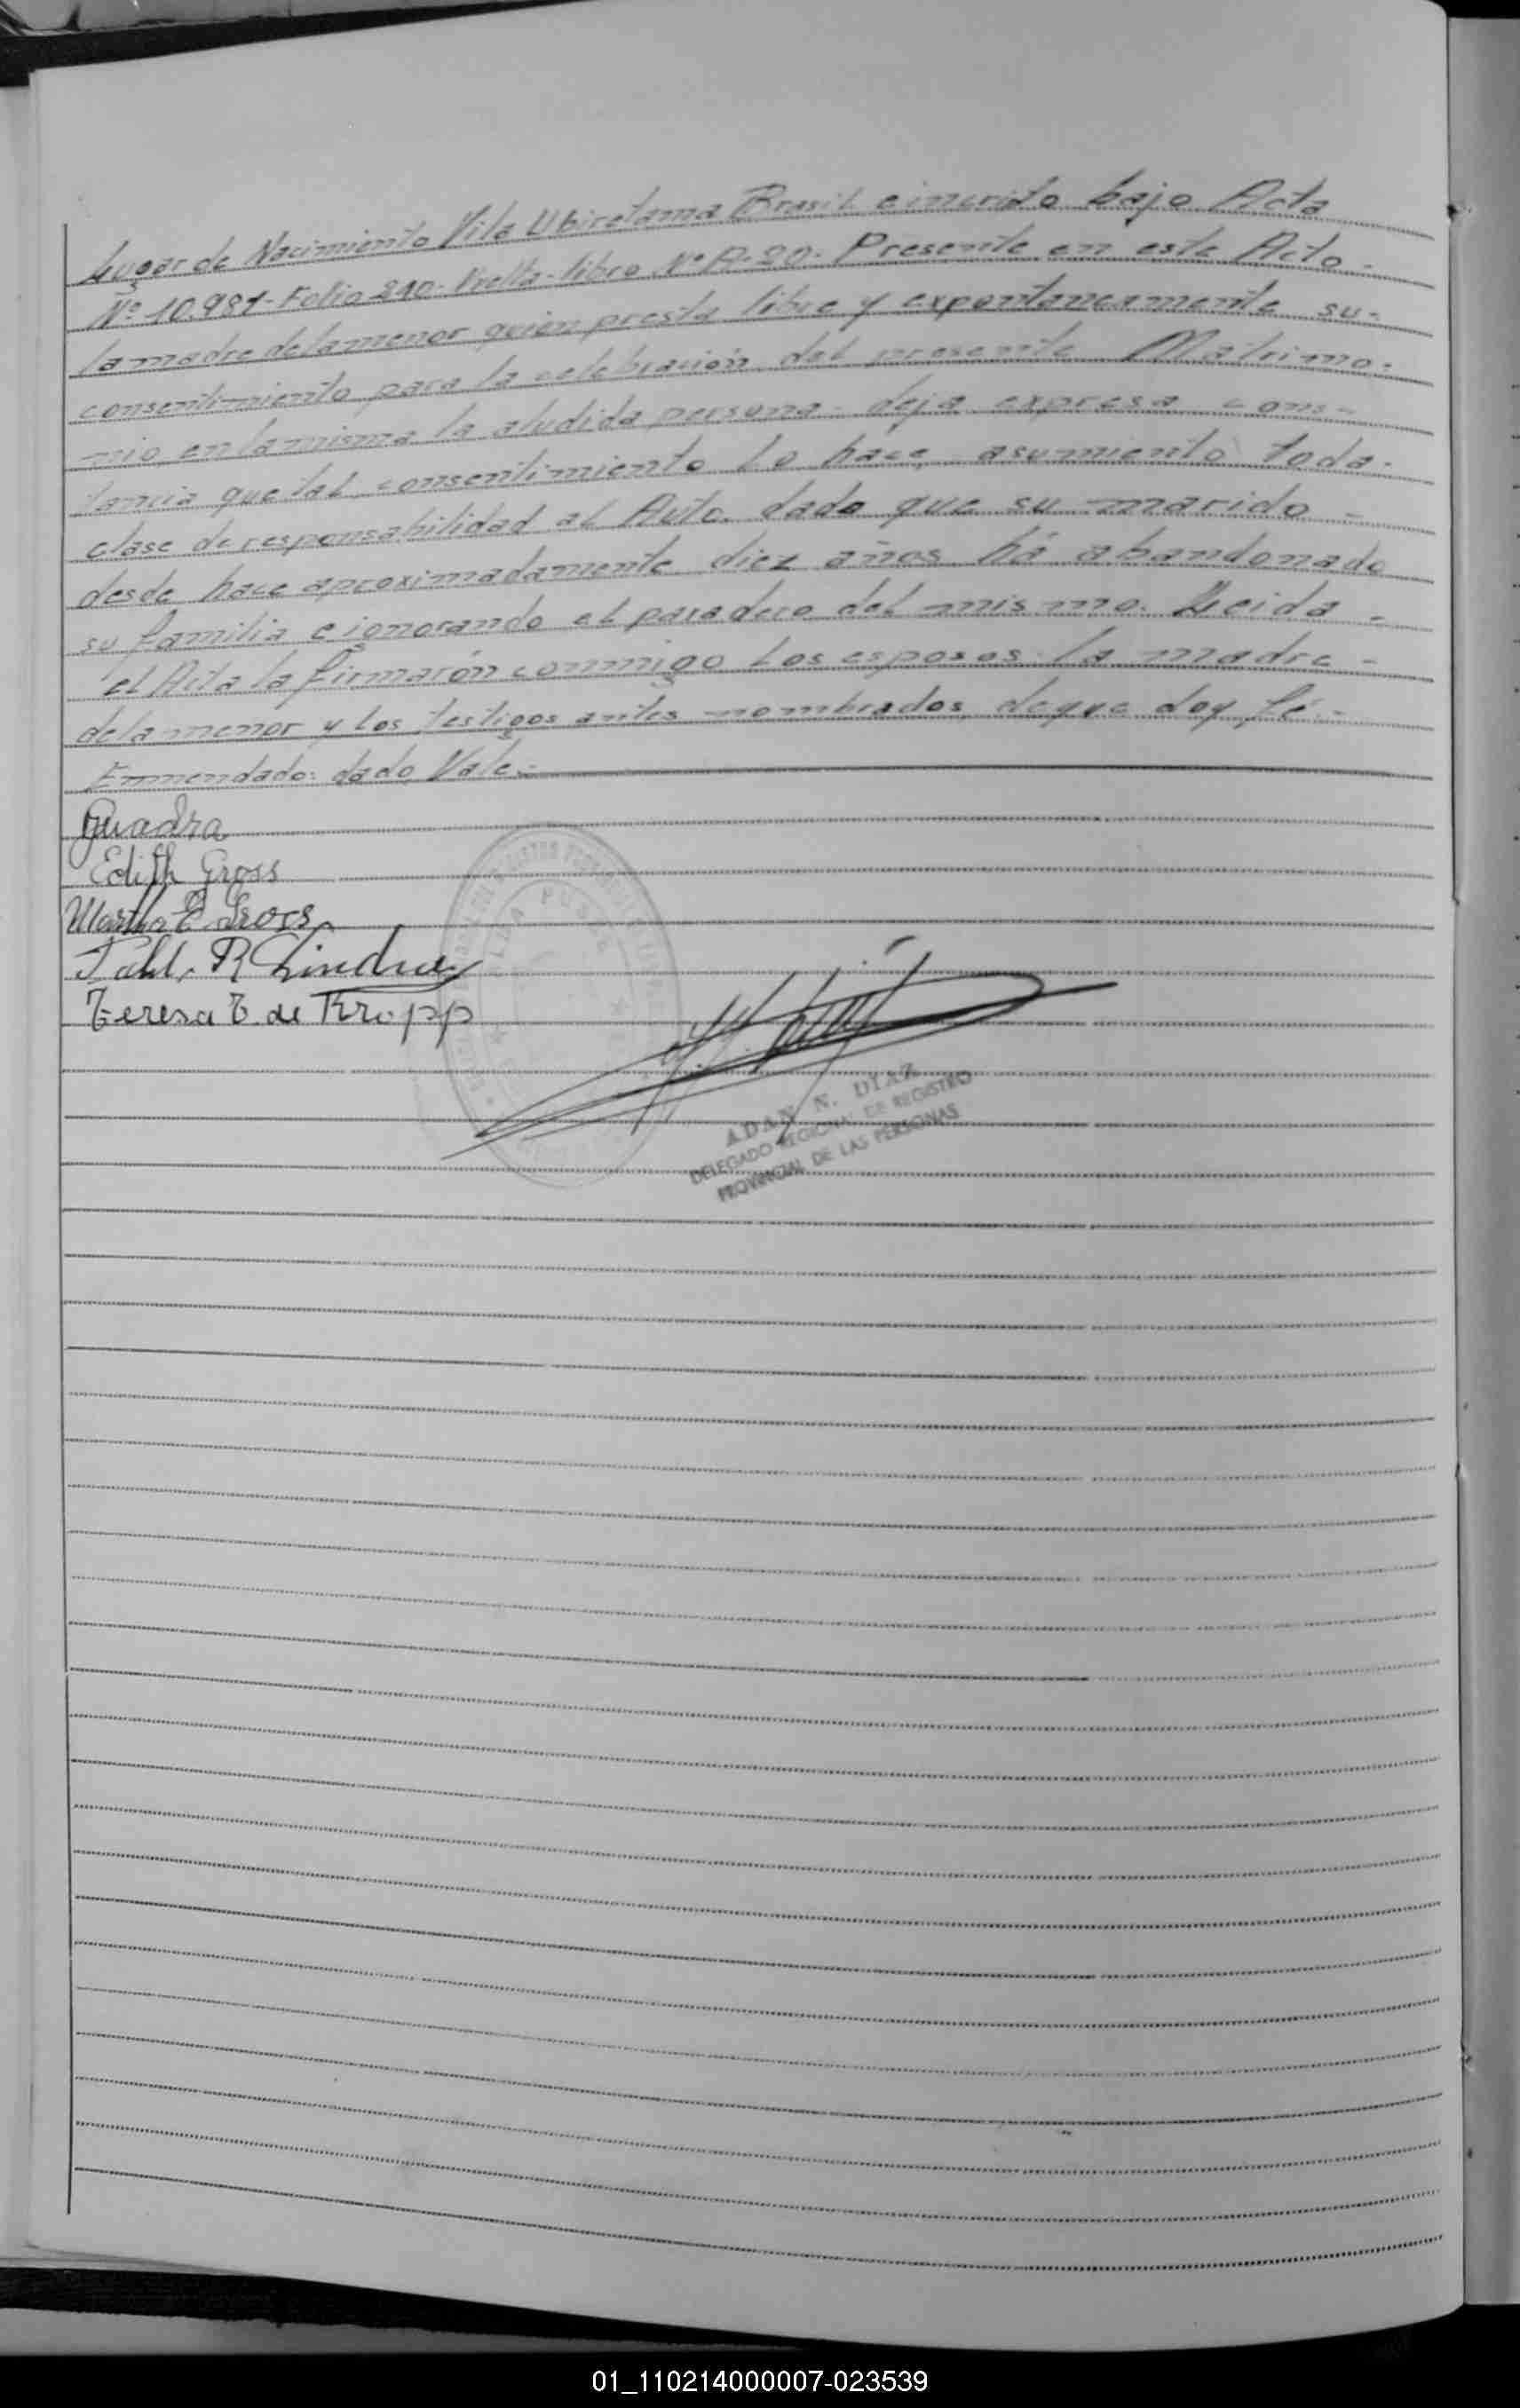 Lugar de Nacimiento Vila Ubiretama Brasil e inscrito bajo Acta
Nº 10.981- Folio 210- Vuelta- libro Nº A-20- Presente en este Acto-
la madre de la menor quien presta libre y expontaneamente su-
consentimiento para la celebración del presente Matrimo-
nio, en la misma la aludida persona- deja expresa cons-
tancia que tal consentimiento lo hace asumiento toda-
clase de responsabilidad al Acto. dado que su marido-
desde hace aproximadamente diez años há abandonado
su familia e ignorando el paradero del mismo. Leida-
el Acta la firmarón conmigo los esposos la madre-
de la menor y los testigos antes nombrados, de que doy fé.-
Enmendado: dado, Vale.-
Edith Gross
Martha E. Gross
R
Teresa T. de Kropp
ADAN N. DIAZ
DELEGADO REGIONAL DE REGISTRO
PROVINCIAL DE LAS PERSONAS
01_110214000007-023539